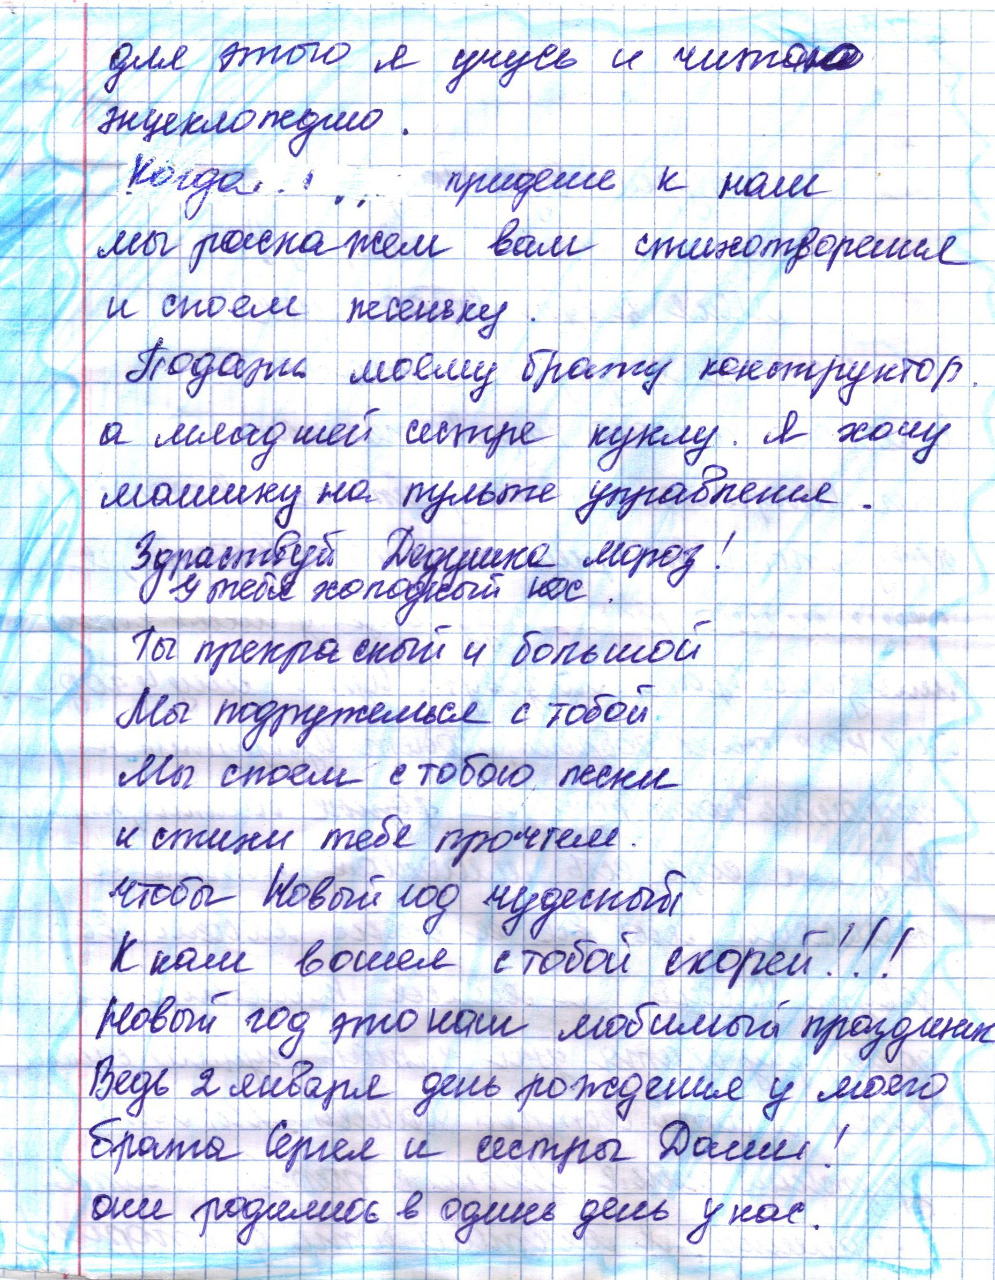 для этого я учусь и читаю
энцеклопедию.
Когда придешь к нам
мы раскажем вам стихотворения
и споем песеньку.
Подари моему брату конструктор.
а младшей сестре куклу. Я хочу
машинку на пульте управления.
Здраствуй Дедушка мороз!
У тебя холодный нос.
Ты прекрасный и большой
Мы подружемься с тобой
Мы споем с тобою песни
и стихи тебе прочтем.
чтобы Новый год чудесный
К нам вошел с тобой скорей!!!
Новый год это наш любимый праздник
Ведь 2 января день рождения у моего
брата Сергея и сестры Даши!
они родились в одинь день у нас.